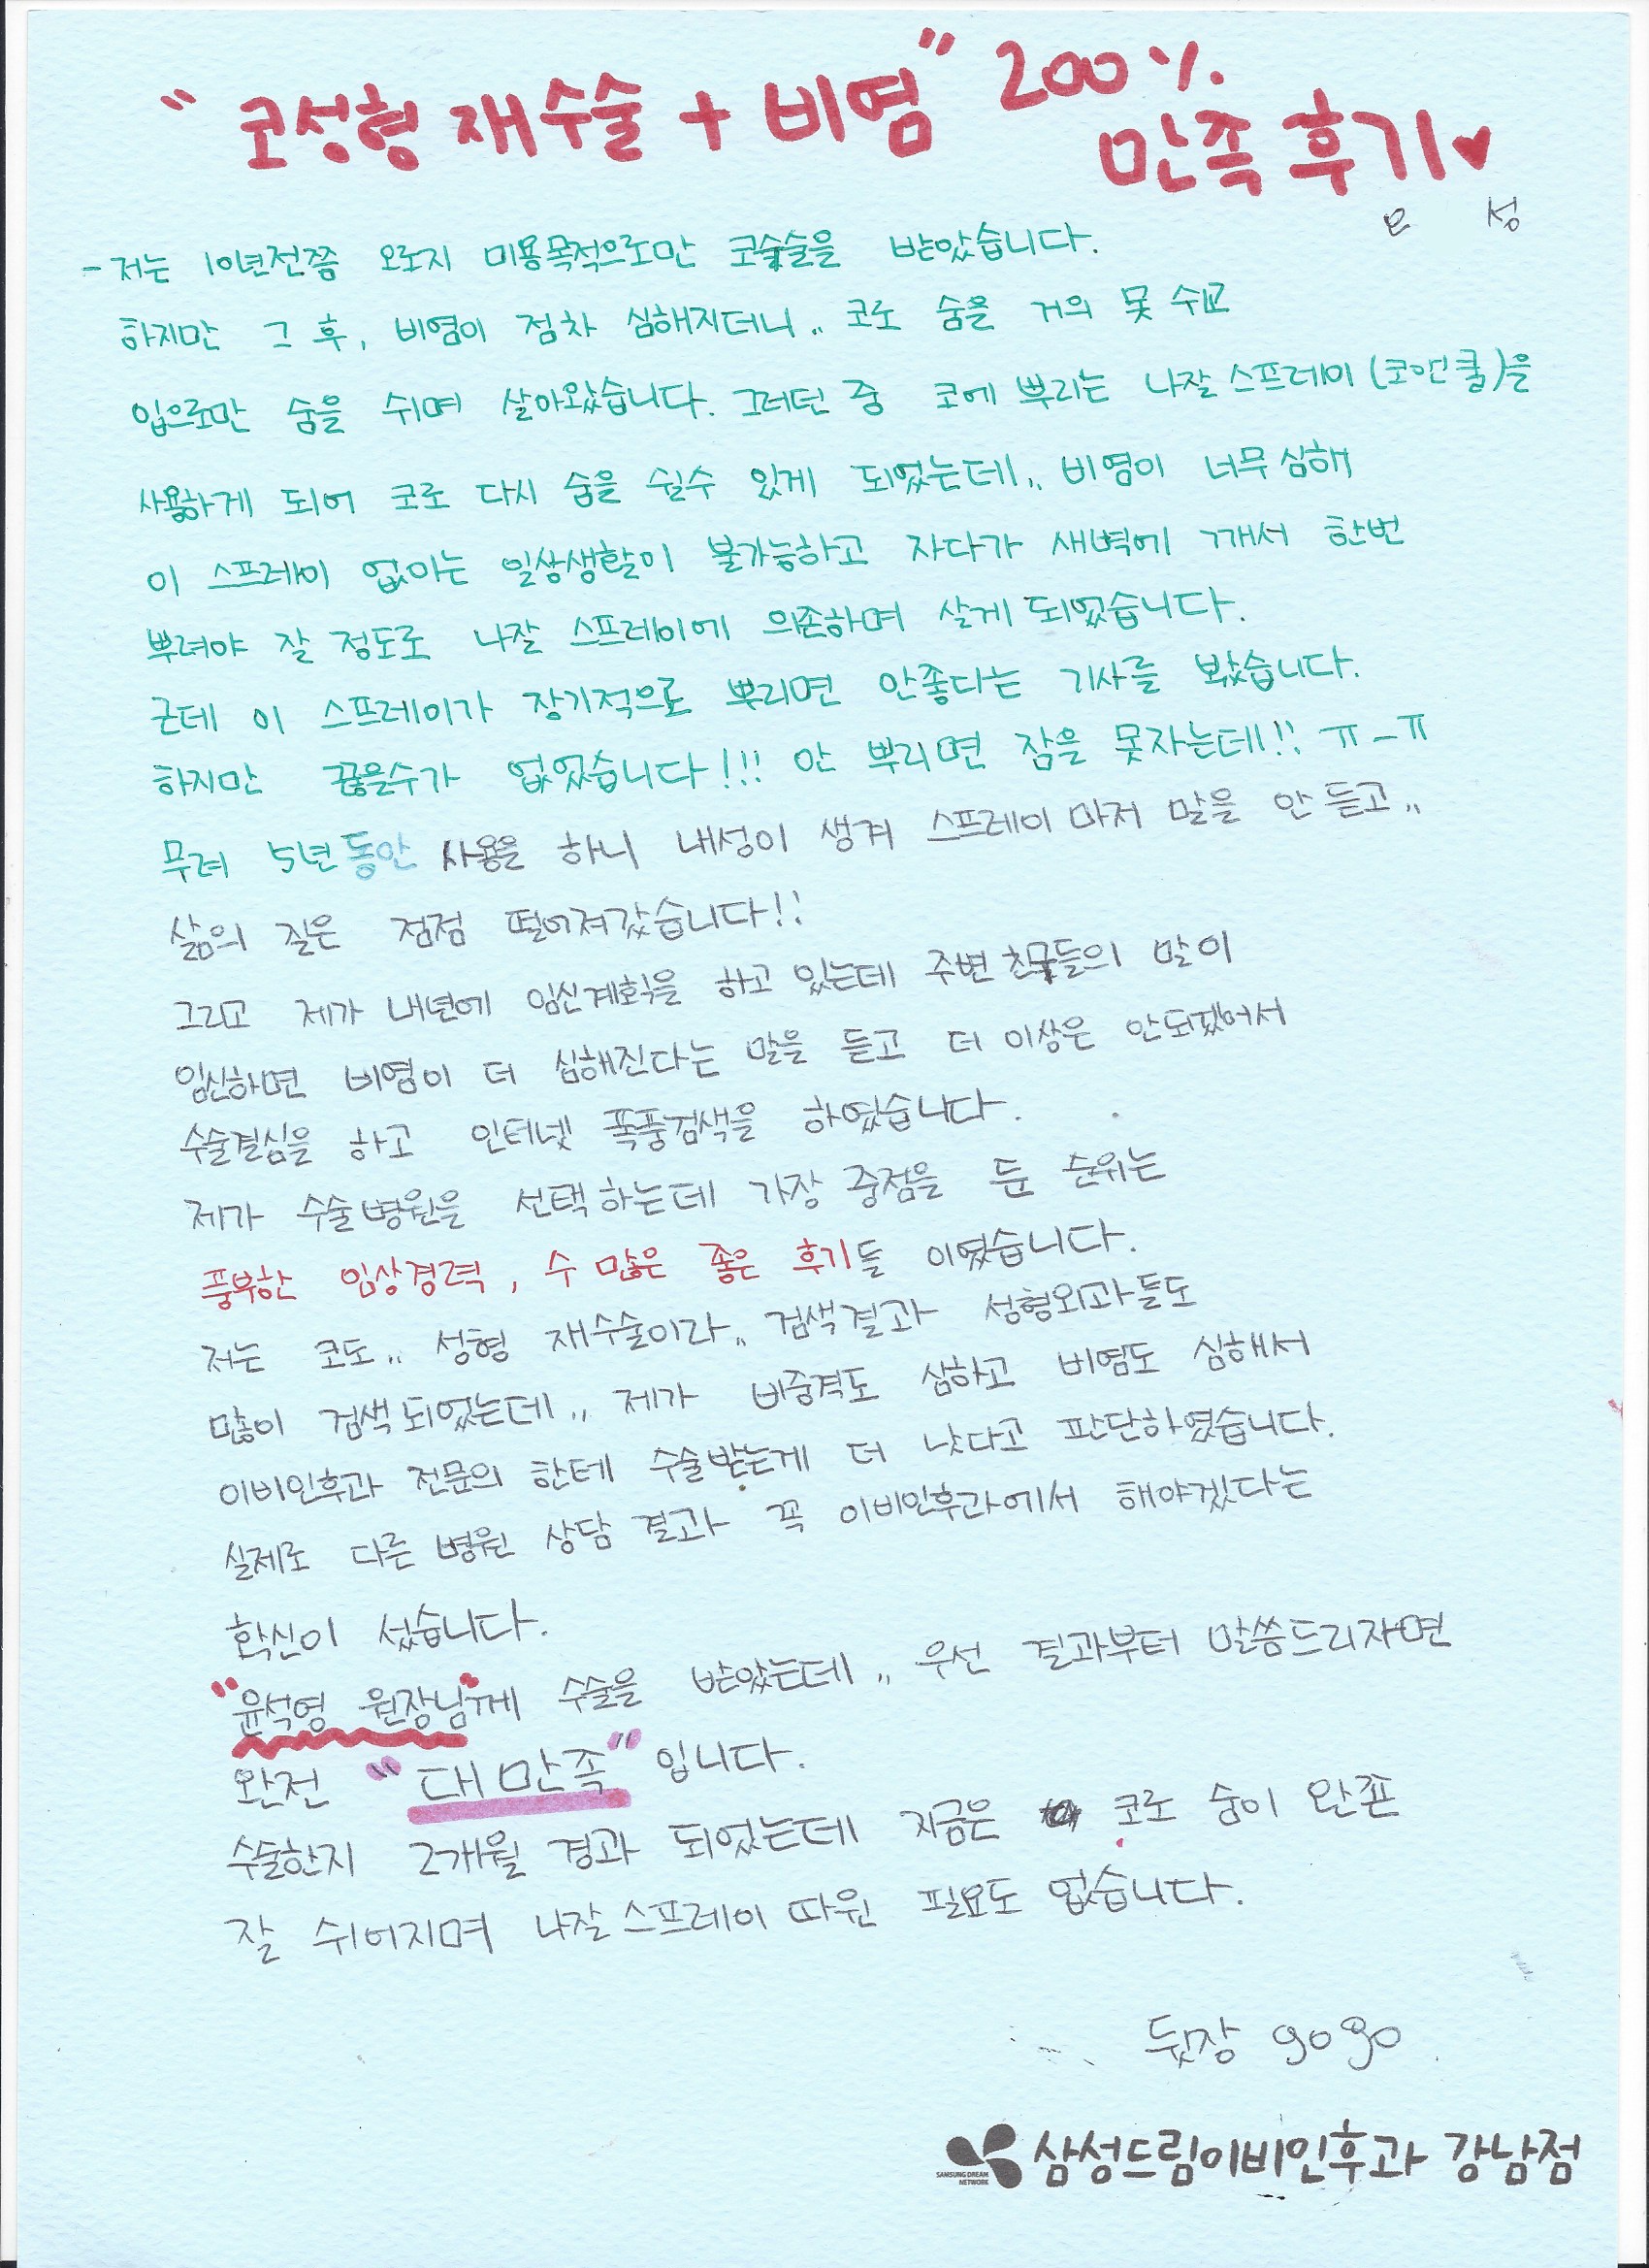 "코성형 재수술 + 비염" 200%
만족 후기♥
은 성
- 저는 10년전쯤 오로지 미용목적으로만 코수술을 받았습니다.
하지만 그 후, 비염이 점차 심해지더니.. 코로 숨을 거의 못 쉬고
입으로만 숨을 쉬며 살아왔습니다. 그러던 중 코에 뿌리는 나잘스프레이 (코앤쿨)을
사용하게 되어 코로 다시 숨을 쉴수 있게 되었는데.. 비염이 너무 심해
이 스프레이 없이는 일상생활이 불가능하고 자다가 새벽에 깨서 한번
뿌려야 잘 정도로 나잘 스프레이에 의존하며 살게 되었습니다.
근데 이 스프레이가 장기적으로 뿌리면 안좋다는 기사를 봤습니다.
하지만 끊을수가 없었습니다!!! 안 뿌리면 잠을 못자는데!! ㅠ_ㅠ
무려 5년동안 사용을 하니 내성이 생겨 스프레이마저 말을 안 듣고..
삶의 질은 점점 떨어져갔습니다!!
그리고 제가 내년에 임신계획을 하고 있는데 주변 친구들의 말이
임신하면 비염이 더 심해진다는 말을 듣고 더 이상은 안되겠어서
수술결심을 하고 인터넷 폭풍검색을 하였습니다.
제가 수술병원을 선택하는데 가장 중점을 둔 순위는
풍부한 임상경력, 수 많은 좋은 후기들 이였습니다.
저는 코도.. 성형 재수술이라.. 검색결과 성형외과들도
많이 검색되었는데.. 제가 비중격도 심하고 비염도 심해서
이비인후과 전문의 한테 수술받는게 더 낫다고 판단하였습니다.
실제로 다른 병원 상담 결과 꼭 이비인후과에서 해야겠다는
확신이 섰습니다.
"윤석영 원장님"께 수술을 받았는데.. 우선 결과부터 말씀드리자면
완전 "대만족" 입니다.
수술한지 2개월 경과 되었는데 지금은 코로 숨이 완죤
잘 쉬어지며 나잘스프레이 따윈 필요도 없습니다.
뒷장 gogo
SAMSUNG DREAM
NETWORK
삼성드림이비인후과 강남점